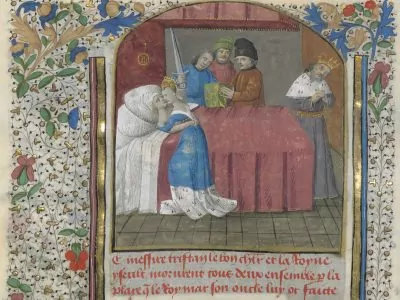 messire tristan le bon chlr et la Royne
yseult morurent tous deux ensemble p la
place q le Roy mar son oncle luy ot faicte